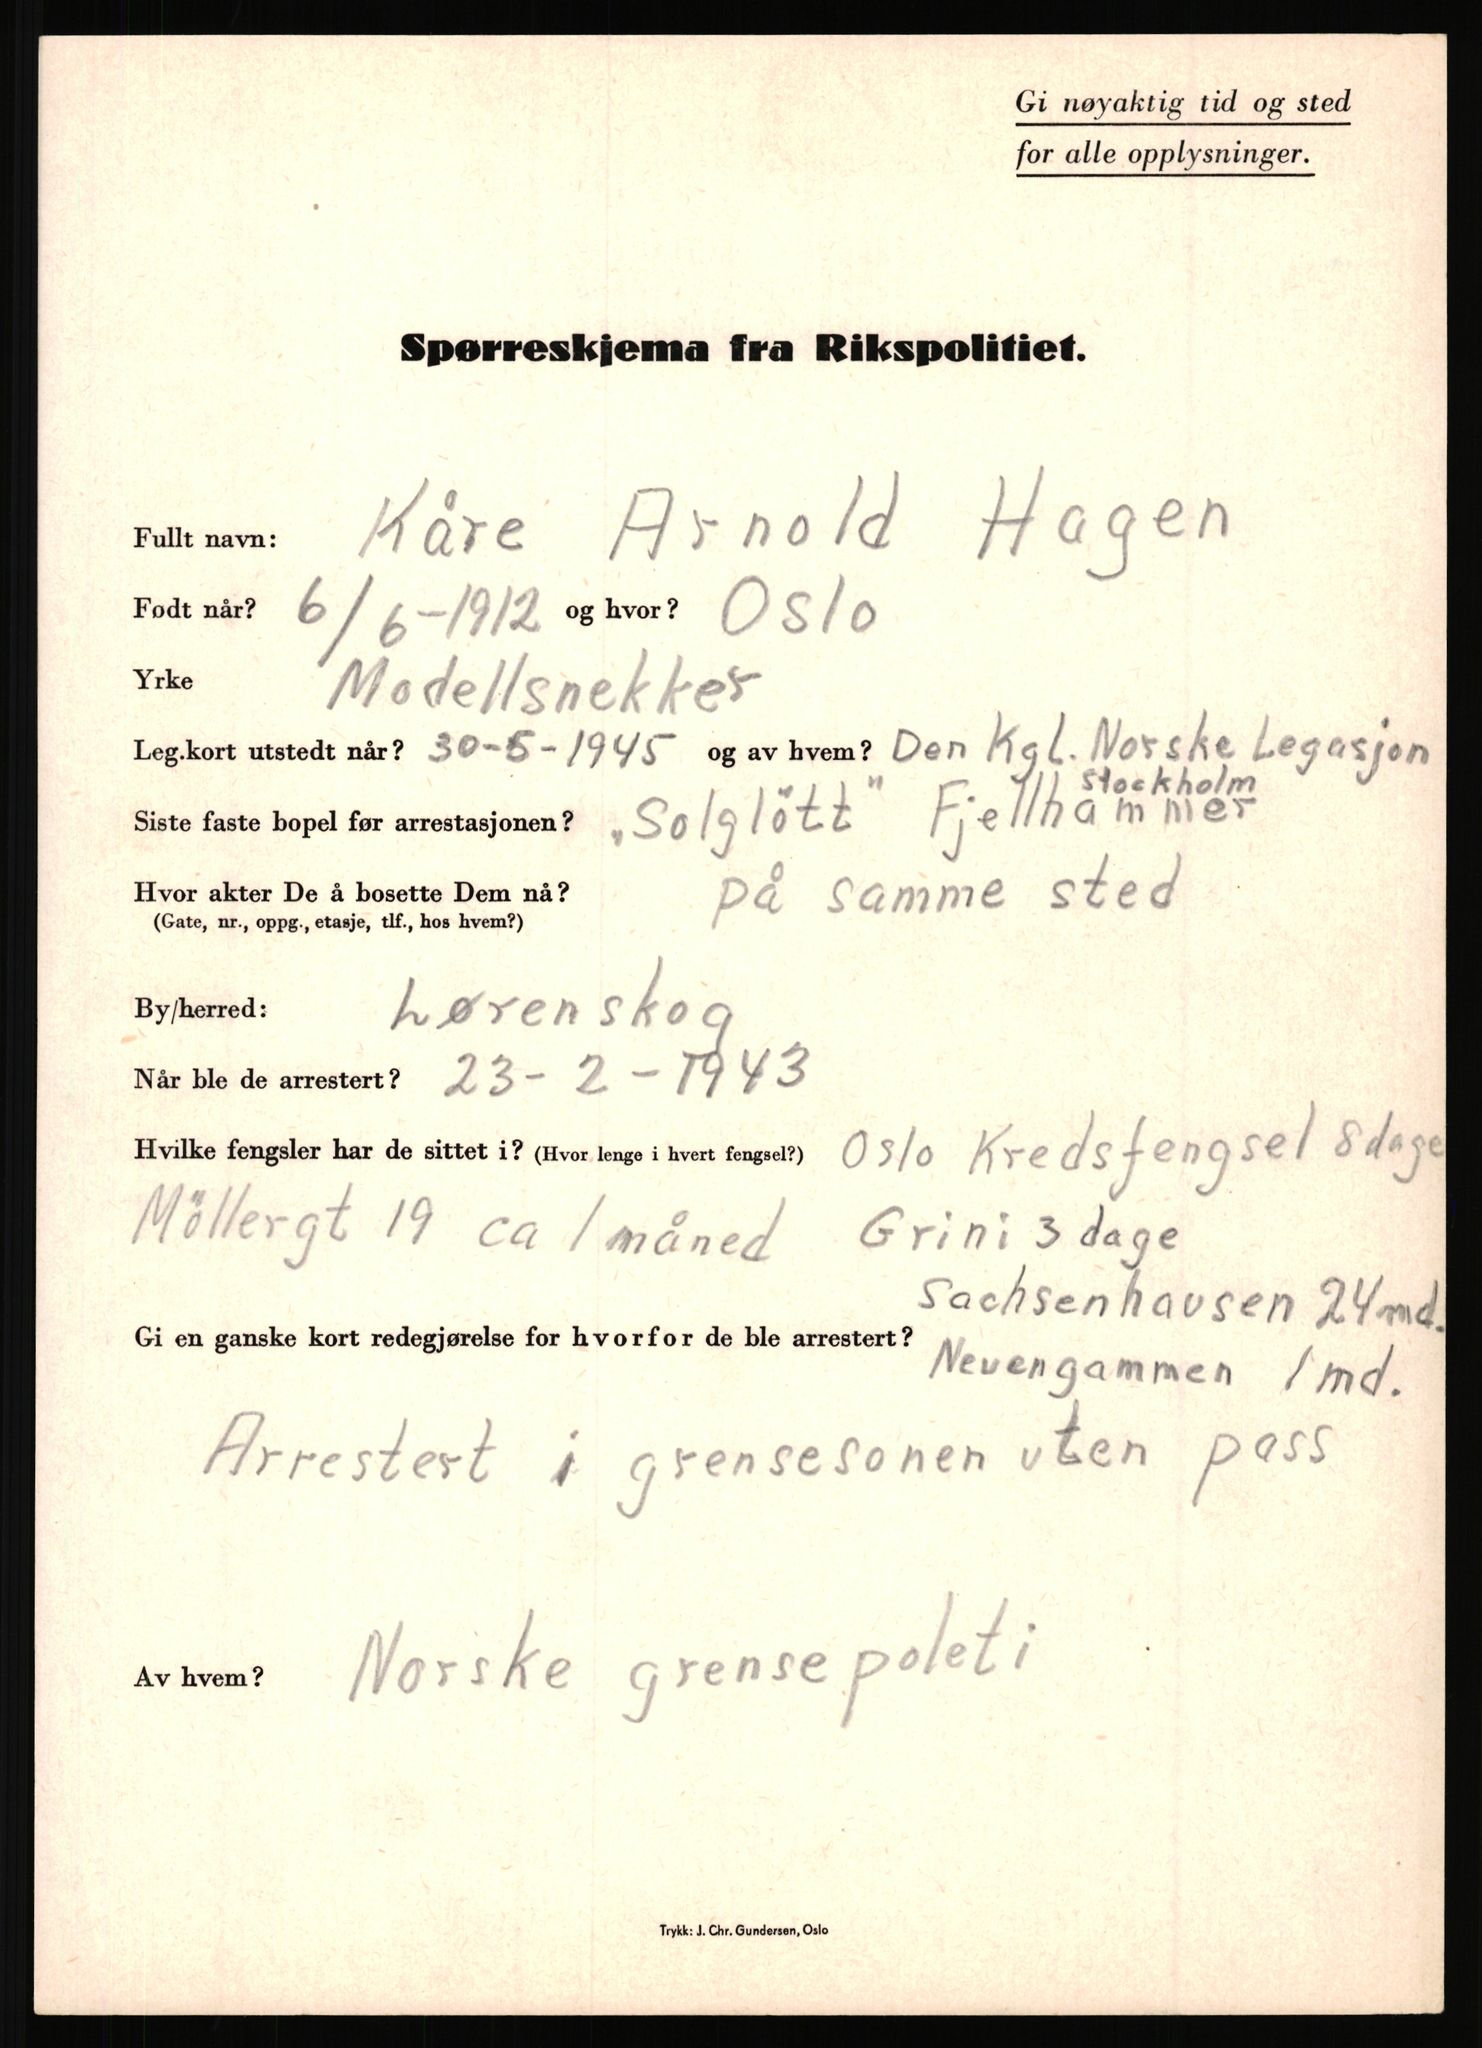 Gi nøyaktig tid og sted
for alle opplysninger.
Spørreskjema fra Rikspolitiet.
Fullt navn: Kåre Arnold Hagen
Født når? 6/6-1912 og hvor? Oslo
Yrke Modellsnekker
Leg.kort utstedt når? 30-5-1945 og av hvem? Den Kgl. Norske Legasjon
Stockholm
Siste faste bopel før arrestasjonen? „Solglött" Fjellhammer
Hvor akter De å bosette Dem nå? på samme sted
(Gate, nr., oppg., etasje, tlf., hos hvem?)
By/herred: Lørenskog
Når ble de arrestert? 23-2-1943
Hvilke fengsler har de sittet i? (Hvor lenge i hvert fengsel?) Oslo Kredsfengsel 8 dage
Möllergt 19 ca 1 måned Grini 3 dage
Sachsenhausen 24 md.
Gi en ganske kort redegjørelse for hvorfor de ble arrestert?
Neuengammen 1 md.
Arrestert i grensesonen uten pass
Av hvem? Norske grensepoleti
Trykk: J. Chr. Gundersen, Oslo